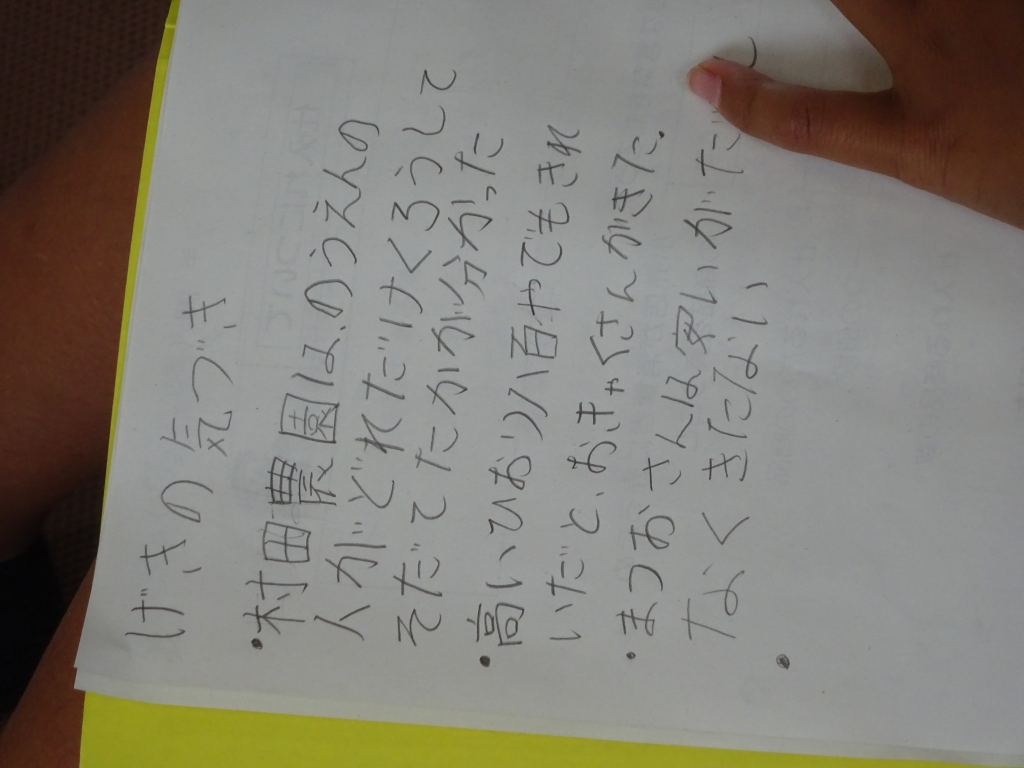 げきの気づき
・村田農園は、のうえんの
人がどれだけくろうして
そだてたかが分かった
・高いひおり八百やでもきれ
いだと、おきゃくさんがきた。
・まつおさんは安いがだ し
なく きたない
・